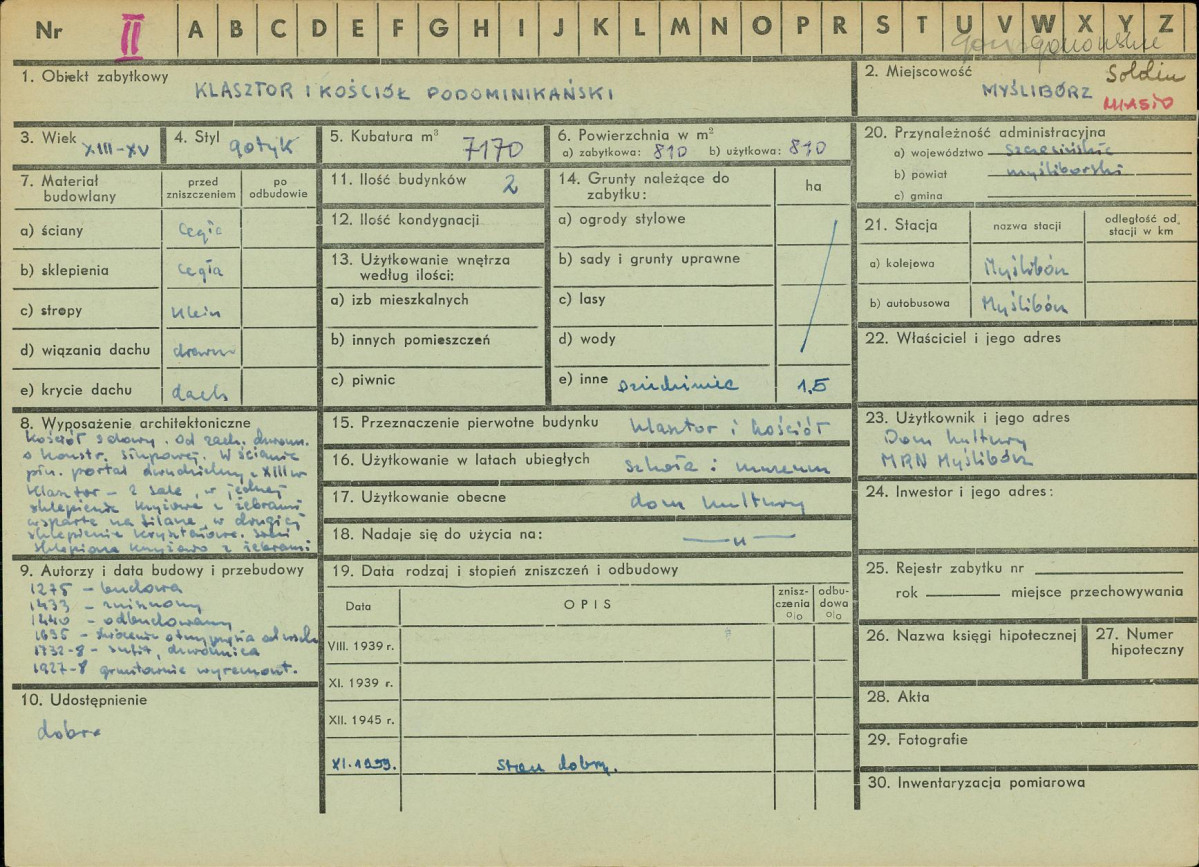 Nr II A B C D E F G H I J K L M N O P R S T U V W X Y Z
gorzowskie
1. Obiekt zabytkowy KLASZTOR I KOŚCIÓŁ PODOMINIKAŃSKI
2. Miejscowość MYŚLIBÓRZ Soldin
MIASTO
3. Wiek XIII-XV
4. Styl gotyk
5. Kubatura m³ 7170
6. Powierzchnia w m²
a) zabytkowa: 810 b) użytkowa: 810
7. Materiał budowlany
przed zniszczeniem
po odbudowie
a) ściany cegła
b) sklepienia cegła
c) stropy Klein
d) wiązania dachu drewn
e) krycie dachu dach
8. Wyposażenie architektoniczne
Kościół salowy. Od zach. dzwonn.
o konstr. słupowej. W ścianie
płn. portal dwudzielny z XIII w
Klasztor – 2 sale, w jednej
sklepienie krzyżowe z żebrami
wsparte na filarze, w drugiej
sklepienie kryształowe.
sklepione krzyżowo z żebrami
9. Autorzy i data budowy i przebudowy
1275 – budowa
1433 – zniszczony
1440 – odbudowany
1635 –
1732-8 – sufit, dzwonnica
1927-8 gruntownie wyremont.
10. Udostępnienie
dobre
11. Ilość budynków 2
12. Ilość kondygnacji
13. Użytkowanie wnętrza według ilości:
a) izb mieszkalnych
b) innych pomieszczeń
c) piwnic
14. Grunty należące do zabytku:
ha
a) ogrody stylowe
b) sady i grunty uprawne
c) lasy
d) wody
e) inne dziedziniec 1,5
15. Przeznaczenie pierwotne budynku klasztor i kościół
16. Użytkowanie w latach ubiegłych szkoła i muzeum
17. Użytkowanie obecne dom kultury
18. Nadaje się do użycia na: —„—
19. Data rodzaj i stopień zniszczeń i odbudowy
Data
OPIS
znisz-
czenia
%
odbu-
dowa
%
VIII. 1939 r.
XI. 1939 r.
XII. 1945 r.
XI.1959. stan dobry.
20. Przynależność administracyjna
a) województwo szczecińskie
b) powiat myśliborski
c) gmina
21. Stacja
nazwa stacji
odległość od stacji w km
a) kolejowa Myślibórz
b) autobusowa Myślibórz
22. Właściciel i jego adres
23. Użytkownik i jego adres
Dom Kultury
MRN Myślibórz
24. Inwestor i jego adres:
25. Rejestr zabytku nr
rok miejsce przechowywania
26. Nazwa księgi hipotecznej
27. Numer hipoteczny
28. Akta
29. Fotografie
30. Inwentaryzacja pomiarowa